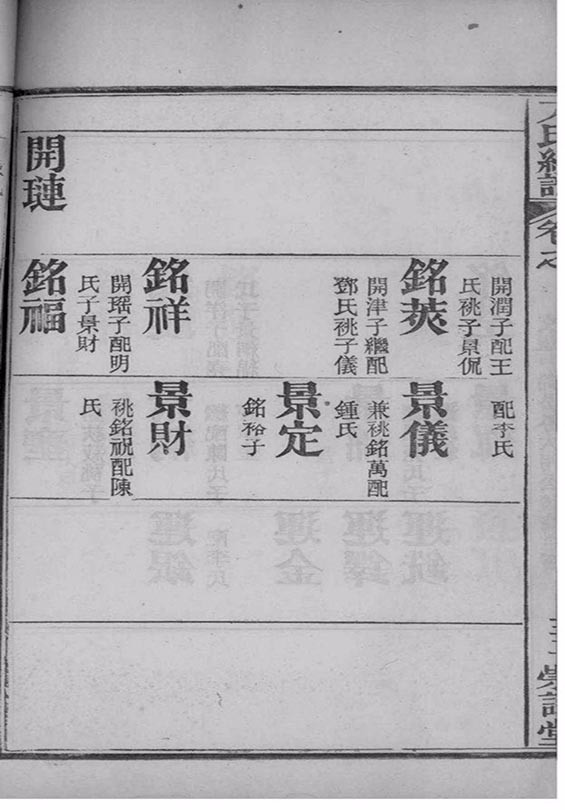 氏總譜
卷之
開璉
開潤子配王
氏祧子景侃
銘莢
開津子繼配
鄧氏祧子儀
銘祥
開瑶子配明
氏子景財
銘福
配李氏
景儀
兼祧銘萬配
鍾氏
景定
銘裕子
景財
祧銘祝配陳
氏